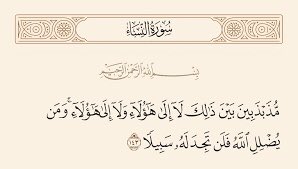 سُورَةُ النِّسَاءِ
بِسْمِ اللَّهِ الرَّحْمَٰنِ الرَّحِيمِ
مُّذَبْذَبِينَ بَيْنَ ذَٰلِكَ لَآ إِلَىٰ هَٰٓؤُلَآءِ وَلَآ إِلَىٰ هَٰٓؤُلَآءِ ۚ وَمَن
يُضْلِلِ ٱللَّهُ فَلَن تَجِدَ لَهُۥ سَبِيلًا ١٤٣